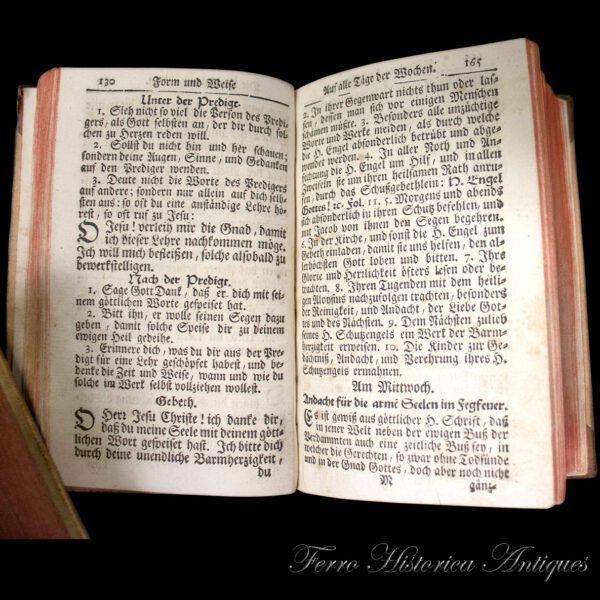 130 Form und Weise
Unter der Predige.
1. Sieh nicht so viel die Person des Predi-
gers, als Gott selbsten an, der dir durch sol-
chen zu Herzen reden will.
2. Sollst du nicht hin und her schauen;
sondern deine Augen, Sinne, und Gedanken
auf den Prediger wenden.
3. Deute nicht die Worte des Predigers
auf andere; sondern nur allein auf dich selb-
sten aus: so oft du eine anständige Lehre hö-
rest, so oft ruf zu Jesu:
O Jesu! verleih mir die Gnad, damit
ich dieser Lehre nachkommen möge.
Ich will mich befleißen, solche alsobald zu
bewerkstelligen.
Nach der Predige.
1. Sage Gott Dank, daß er dich mit sei-
nem göttlichen Worte gespeiset hat.
2. Bitt ihn, er wolle seinen Segen dazu
geben, damit solche Speise dir zu deinem
ewigen Heil gedeihe.
3. Erinnere dich, was du aus der Pre-
digt für eine Lehr geschöpfet habest, und be-
denke die Zeit und Weise, wann und wie du
solche im Werk selbst vollziehen wollest.
Gebeth.
O Herr Jesu Christe! ich danke dir,
daß du meine Seele mit deinem gött-
lichen Wort gespeiset hast. Ich bitte dich
durch deine unendliche Barmherzigkeit,
du
Auf alle Täge der Wochen. 165
2. In ihrer Gegenwart nichts thun oder las-
sen, dessen man sich vor einigen Menschen
schämen müßte. 3. Besonders alle unzüchtige
Worte und Werke meiden, als durch welche
die H. Engel absonderlich betrübt und abge-
wendet werden. 4. In aller Noth und An-
fechtung die H. Engel um Hilf, und in allen
Zweifeln sie um ihren heilsamen Rath anru-
fen, durch das Schutzgebethlein: O. Engel
Gottes! ꝛc. Fol. 11. 5. Morgens und abends
sich absonderlich in ihren Schutz befehlen, und
mit Jacob von ihnen den Segen begehren.
6. In der Kirche, und sonst die H. Engel zum
Gebeth einladen, damit sie uns helfen, den al-
lerhöchsten Gott loben und bitten. 7. Ihre
Glorie und Herrlichkeit öfters lesen oder be-
trachten. 8. Ihren Tugenden mit dem heili-
gen Aloysius nachzufolgen trachten, besonders
der Reinigkeit, und Andacht, der Liebe Got-
tes und des Nächsten. 9. Dem Nächsten zulieb
seines H. Schutzengels ein Werk der Barm-
herzigkeit erweisen. 10. Die Kinder zur Ge-
dächtniß, Andacht, und Verehrung ihres H.
Schutzengels ermahnen.
Am Mittwoch.
Andacht für die arme Seelen im Fegfeuer.
Es ist gewiß aus göttlicher H. Schrift, daß
in jener Welt neben der ewigen Buß der
Verdammten auch eine zeitliche Buß sey, in
welcher die Gerechten, so zwar ohne Todsünde
und in der Gnad Gottes, doch aber noch nicht
M gänz-
Ferro Historica Antiques